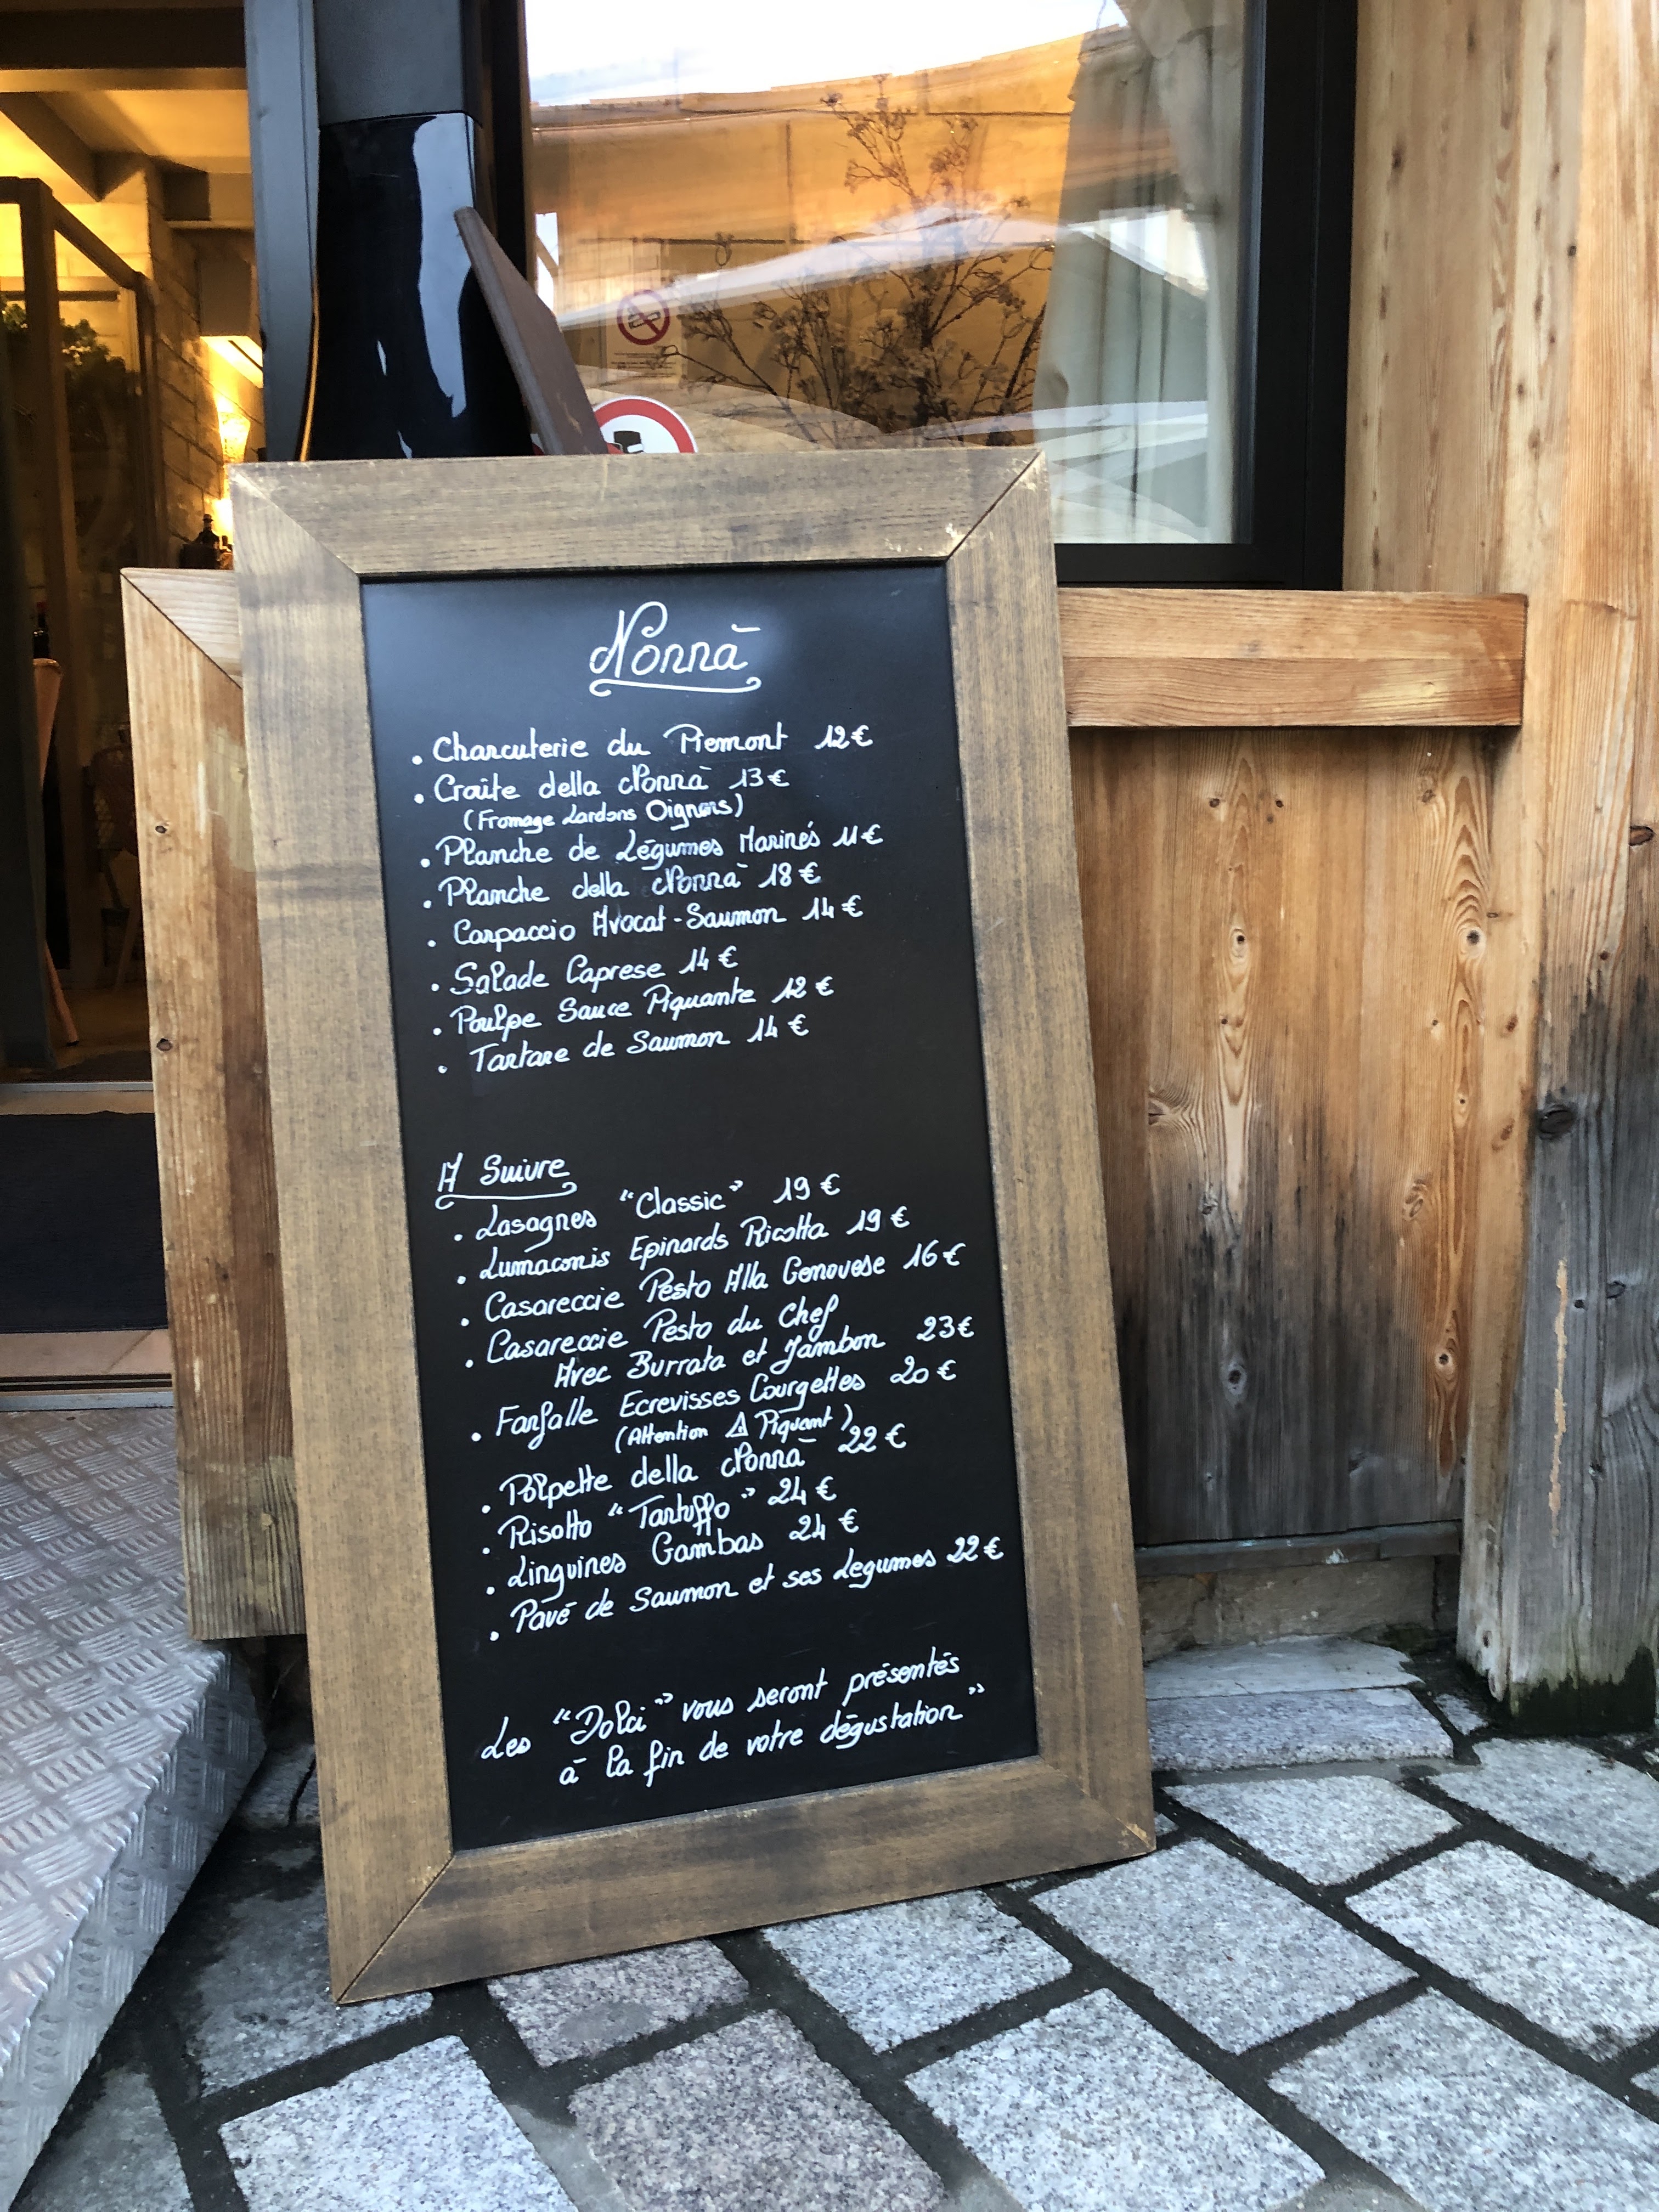 Nonnà
. Charcuterie du Piemont 12€
. Croûte della Nonnà 13€
(Fromage Lardons Oignons)
. Planche de Légumes Marinés 11€
. Planche della Nonnà 18€
. Carpaccio Avocat-Saumon 14€
. Salade Caprese 14€
. Poulpe Sauce Piquante 12€
. Tartare de Saumon 14€
A Suivre
. Lasagnes "Classic" 19€
. Lumaconis Epinards Ricotta 19€
. Casareccie Pesto Alla Genovese 16€
. Casareccie Pesto du Chef
Avec Burrata et Jambon 23€
. Farfalle Ecrevisses Courgettes 20€
(Attention ⚠ Piquant)
. Polpette della Nonnà 22€
. Risotto "Tartuffo" 24€
. Linguines Gambas 24€
. Pavé de Saumon et ses Legumes 22€
Les "Dolci" vous seront présentés
à la fin de votre dégustation"